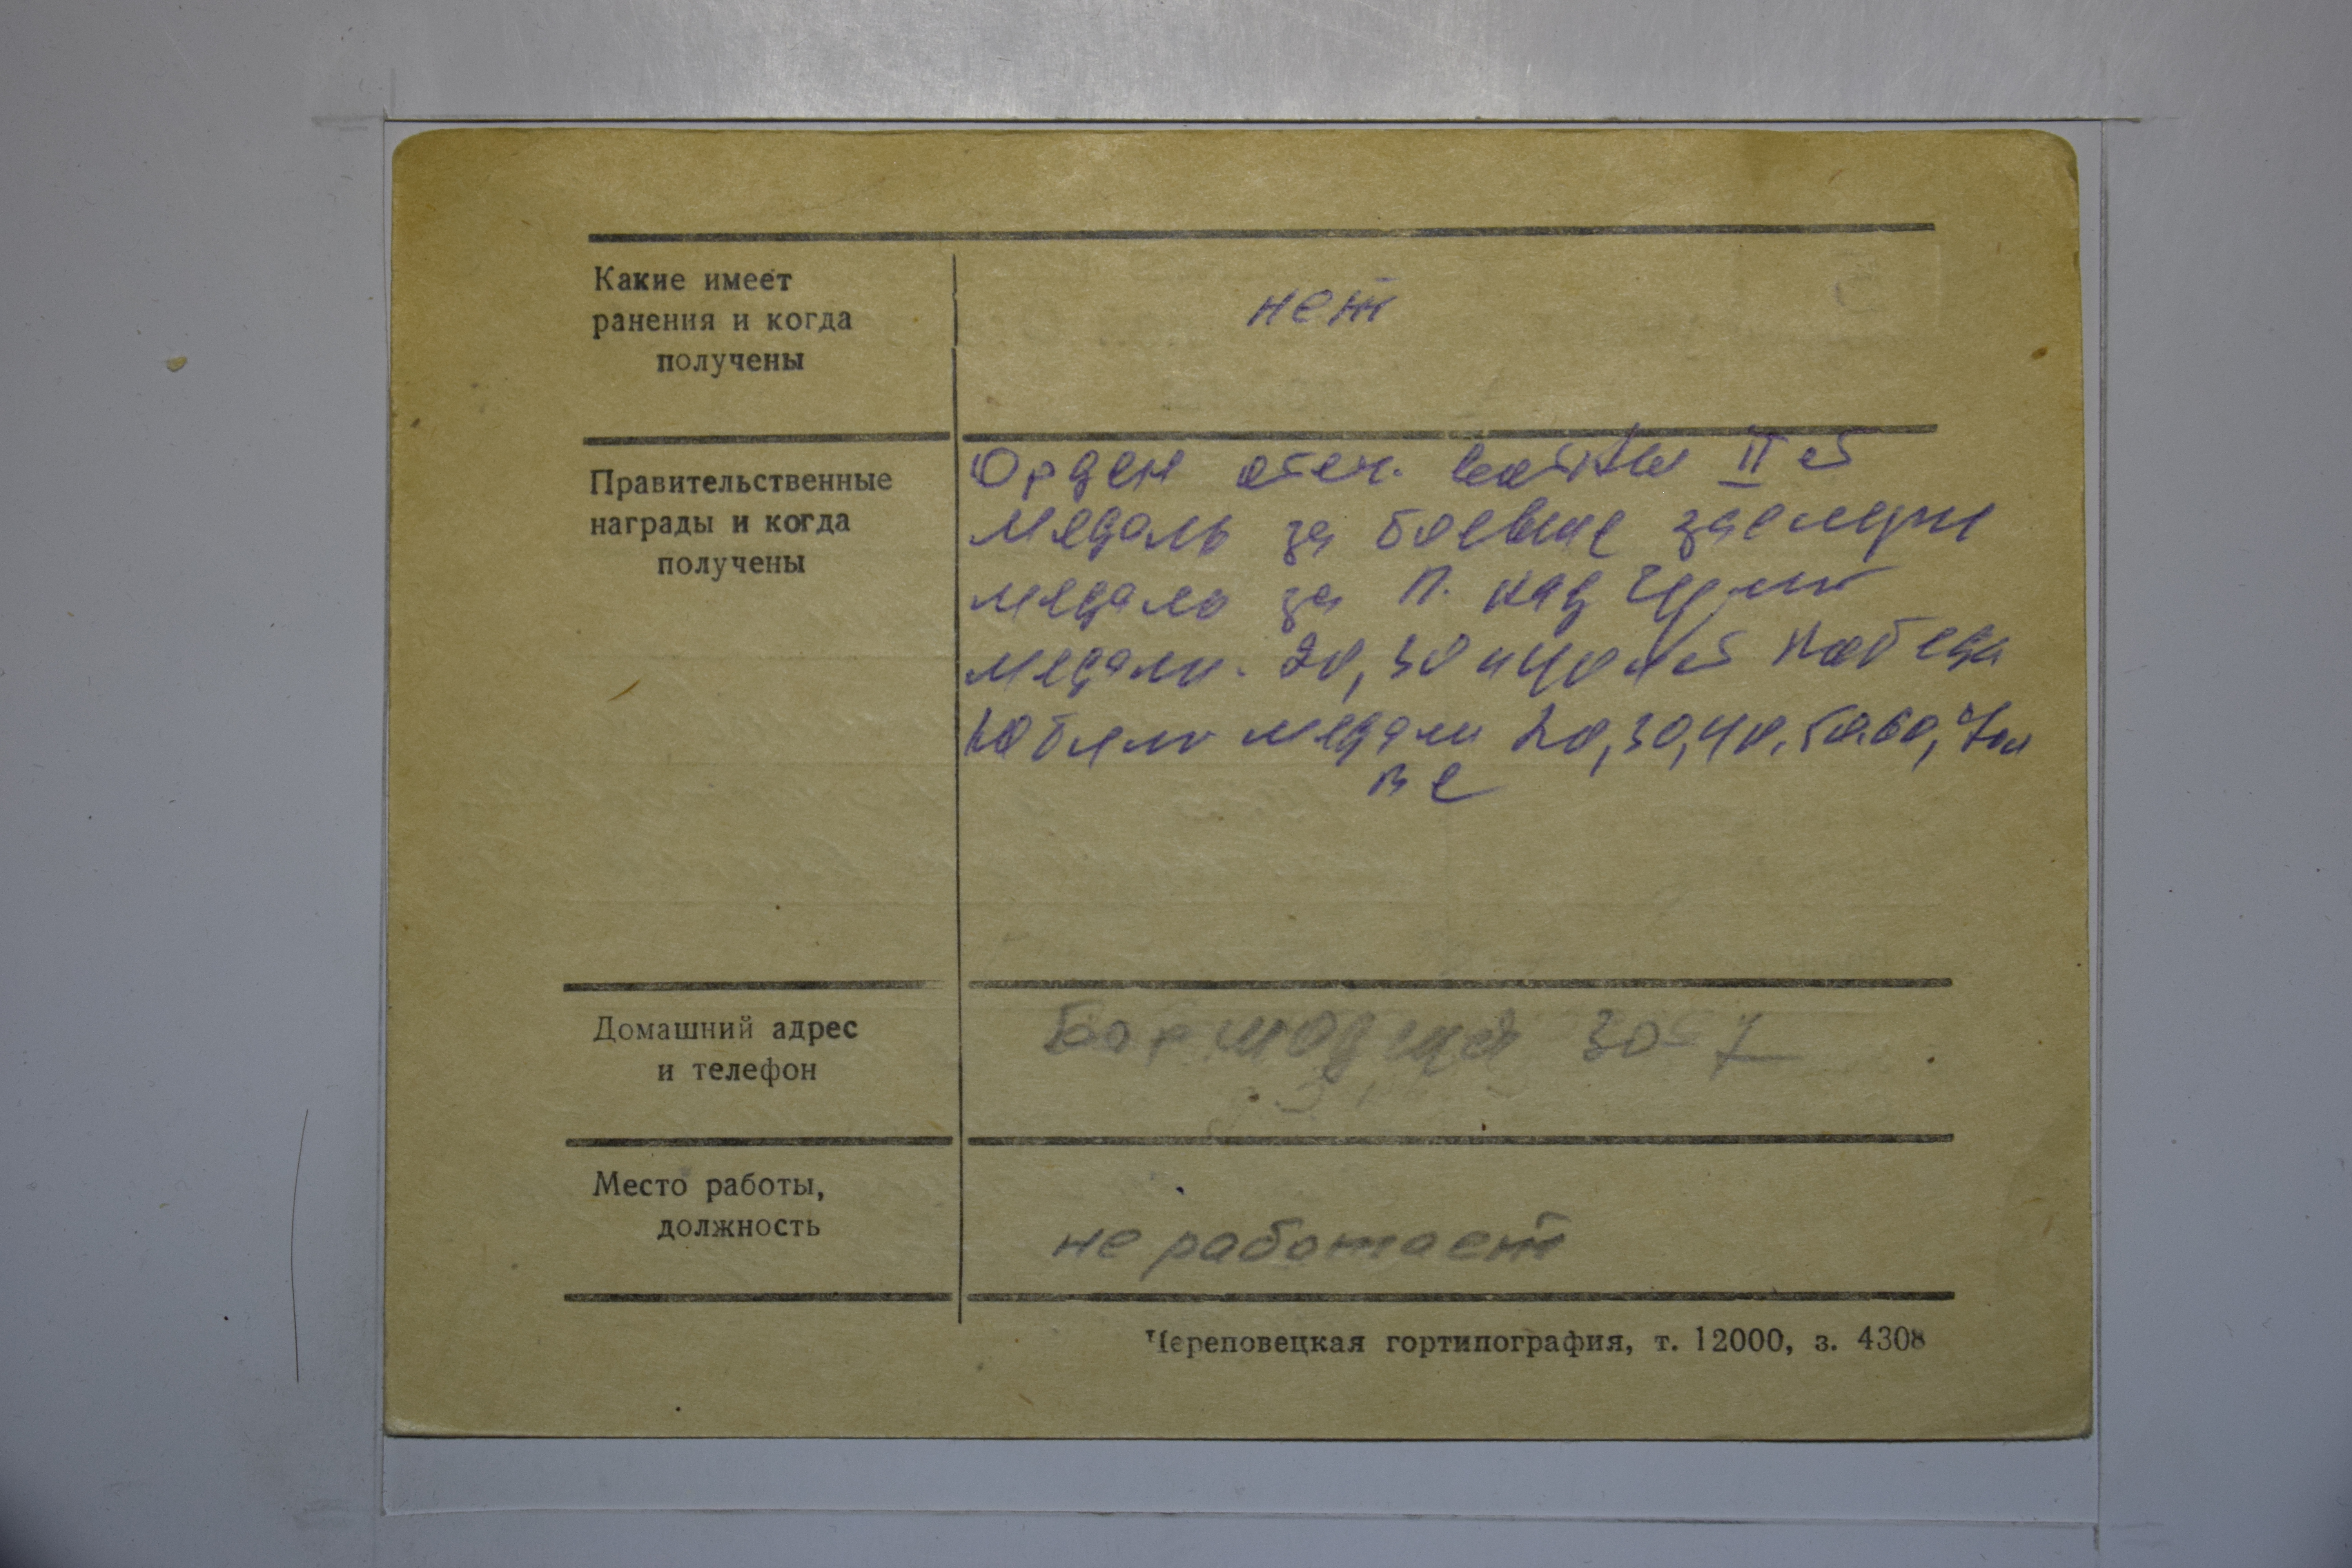 Какие имеет
ранения и когда
получены
нет
Правительственные
награды и когда
получены
Орден отеч. войны II ст
медаль за боевые заслуги
медаль за п. над Герм
медали. 20, 30 и 40 лет победы
Юбил медали 20, 30, 40, 50, 60, 70
ВС
Домашний адрес
и телефон
30-7
Место работы,
должность
не работает
Череповецкая гортипография, т. 12000, з. 4308